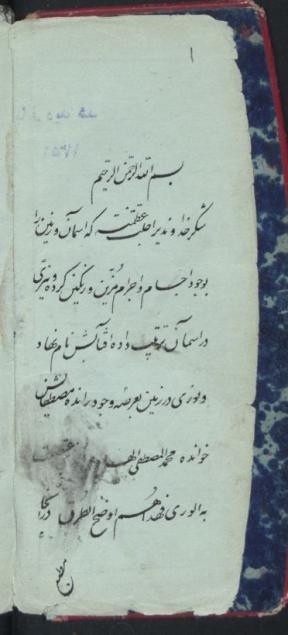 ۱
بسم الله الرحمن الرحیم
شکر خداوندیرا جلت عظمته که اسمان و زمین را
بوجود اجسام و اجرام مزین و رنگین کرده و نیری
در اسمان ترتیب داده افتابش نام نهاد
و نوری در زمین بعرصه وجود رانده مصطفایش
خوانده محمد المصطفی
به الوری فهداهم اوضح الطرق